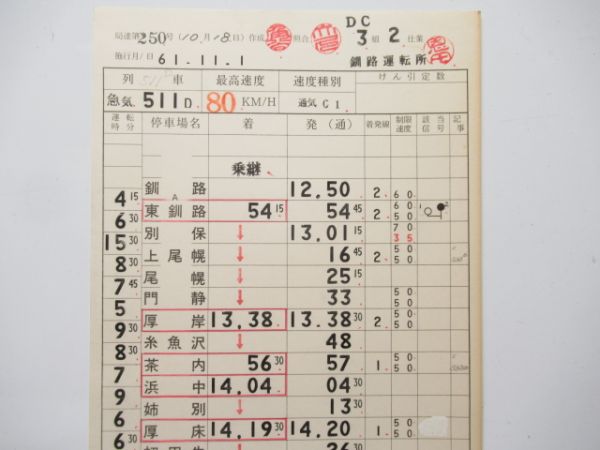 局達第250号(10月18日)作成 照合 DC 3組 2仕業
施行月/日 61.11.1 釧路運転所
列車 最高速度 速度種別 けん引定数
急気 511D 80 KM/H 通気C1
運転時分 停車場名 着 発(通) 着発線 制限速度 該当信号 記事
乗継
釧路 12.50 2. 60
4 15 A 東釧路 54 15 54 45 2. 60 50
6 30 別保 ↓ 13.01 15 70 35
15 30 上尾幌 ↓ 16 45 2. 50 50
8 30 尾幌 ↓ 25 15
7 45 門静 ↓ 33 50 50
5 厚岸 13.38 13.38 30 2. 50 50
9 30 糸魚沢 ↓ 48
8 30 茶内 56 30 57 1. 50 50
7 浜中 14.04 04 30
9 姉別 ↓ 13 30
6 厚床 14.19 30 14.20 1. 50 50
6 30